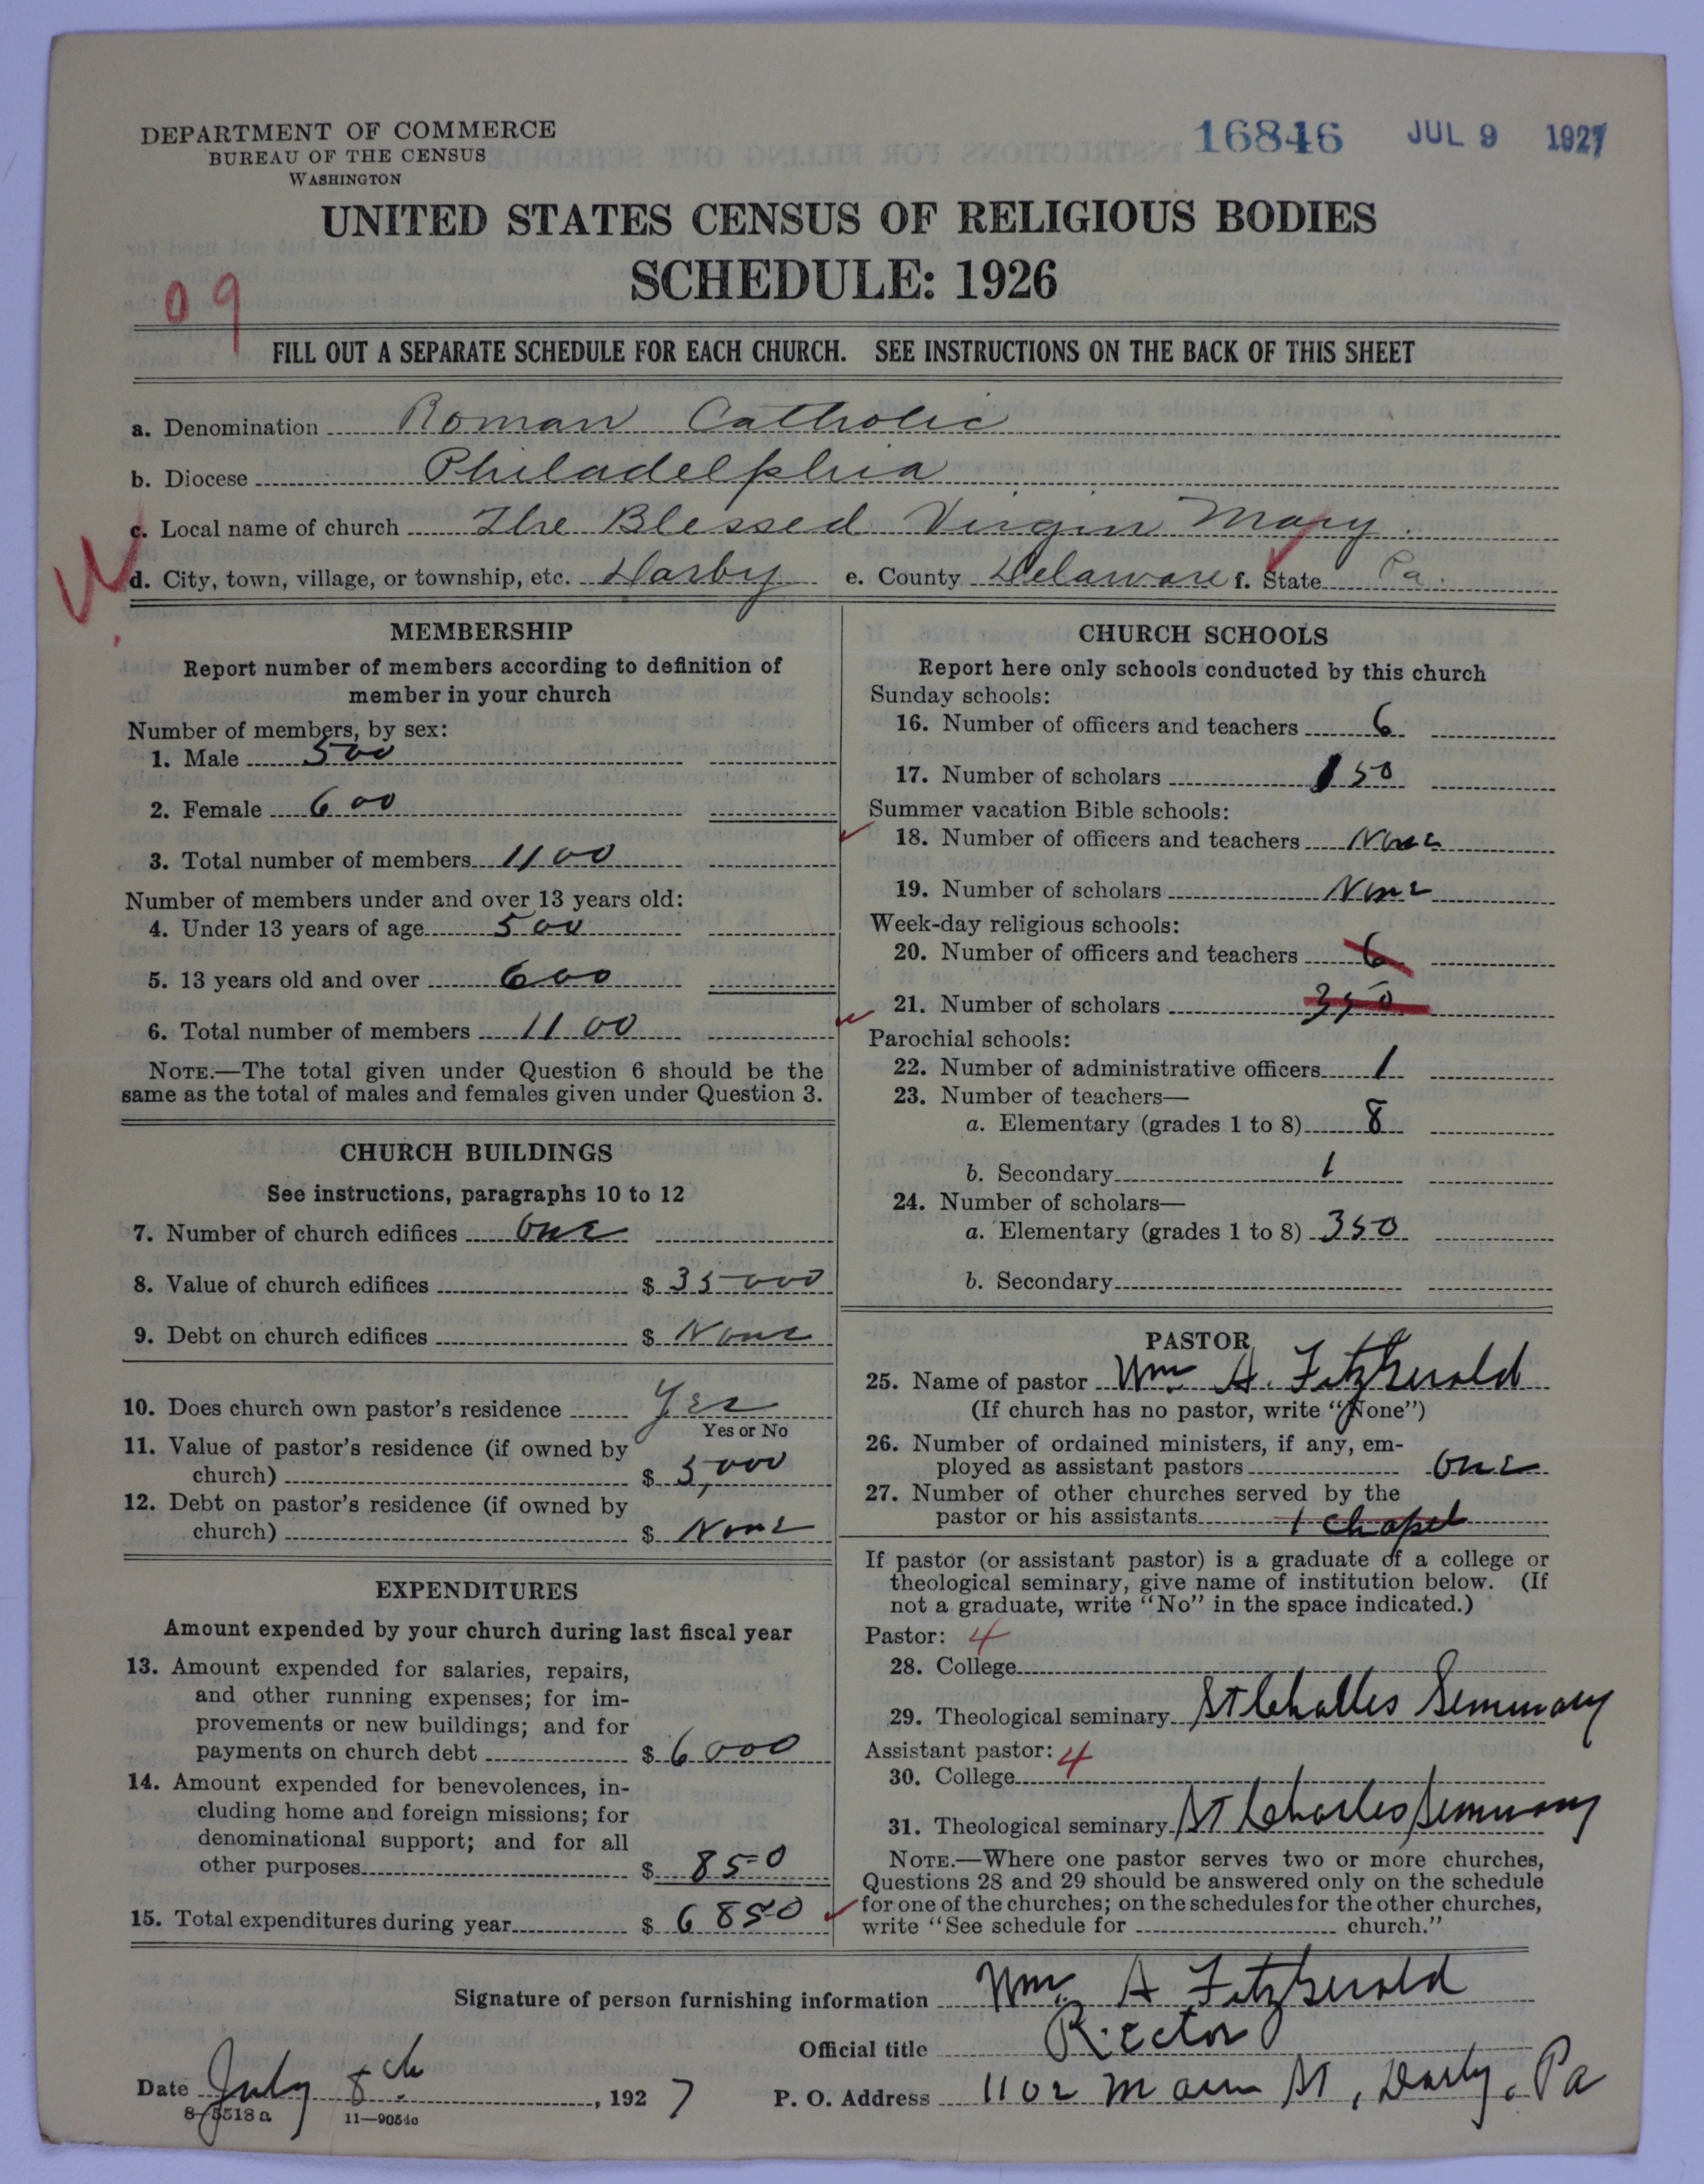 DEPARTMENT OF COMMERCE
BUREAU OF THE CENSUS
WASHINGTON
16846 JUL 9 1927
UNITED STATES CENSUS OF RELIGIOUS BODIES
SCHEDULE: 1926
09
FILL OUT A SEPARATE SCHEDULE FOR EACH CHURCH. SEE INSTRUCTIONS ON THE BACK OF THIS SHEET
a. Denomination Roman Catholic
b. Diocese Philadelphia
c. Local name of church The Blessed Virgin Mary.
d. City, town, village, or township, etc. Darby e. County Delaware f. State Pa.
MEMBERSHIP
Report number of members according to definition of
member in your church
Number of members, by sex:
1. Male 500
2. Female 600
3. Total number of members 1100
Number of members under and over 13 years old:
4. Under 13 years of age 500
5. 13 years old and over 600
6. Total number of members 1100
NOTE.—The total given under Question 6 should be the
same as the total of males and females given under Question 3.
CHURCH BUILDINGS
See instructions, paragraphs 10 to 12
7. Number of church edifices One
8. Value of church edifices $ 35000
9. Debt on church edifices $ None
10. Does church own pastor's residence Yes
Yes or No
11. Value of pastor's residence (if owned by
church) $ 5,000
12. Debt on pastor's residence (if owned by
church) $ None
EXPENDITURES
Amount expended by your church during last fiscal year
13. Amount expended for salaries, repairs,
and other running expenses; for im-
provements or new buildings; and for
payments on church debt $ 6000
14. Amount expended for benevolences, in-
cluding home and foreign missions; for
denominational support; and for all
other purposes $ 850
15. Total expenditures during year $ 6850
CHURCH SCHOOLS
Report here only schools conducted by this church
Sunday schools:
16. Number of officers and teachers 6
17. Number of scholars 150
Summer vacation Bible schools:
18. Number of officers and teachers None
19. Number of scholars None
Week-day religious schools:
20. Number of officers and teachers 6
21. Number of scholars 350
Parochial schools:
22. Number of administrative officers 1
23. Number of teachers—
a. Elementary (grades 1 to 8) 8
b. Secondary 1
24. Number of scholars—
a. Elementary (grades 1 to 8) 350
b. Secondary
PASTOR
25. Name of pastor Wm A. FitzGerald
(If church has no pastor, write "None")
26. Number of ordained ministers, if any, em-
ployed as assistant pastors One
27. Number of other churches served by the
pastor or his assistants 1 chapel
If pastor (or assistant pastor) is a graduate of a college or
theological seminary, give name of institution below. (If
not a graduate, write "No" in the space indicated.)
Pastor: 4
28. College
29. Theological seminary St Challes Seminary
Assistant pastor: 4
30. College
31. Theological seminary St Charles Seminary
NOTE.—Where one pastor serves two or more churches,
Questions 28 and 29 should be answered only on the schedule
for one of the churches; on the schedules for the other churches,
write "See schedule for church."
Signature of person furnishing information Wm. A FitzGerald
Official title Rector
Date July 8th, 1927 P. O. Address 1102 Main St, Darby, Pa
8-5518a 11-9054c